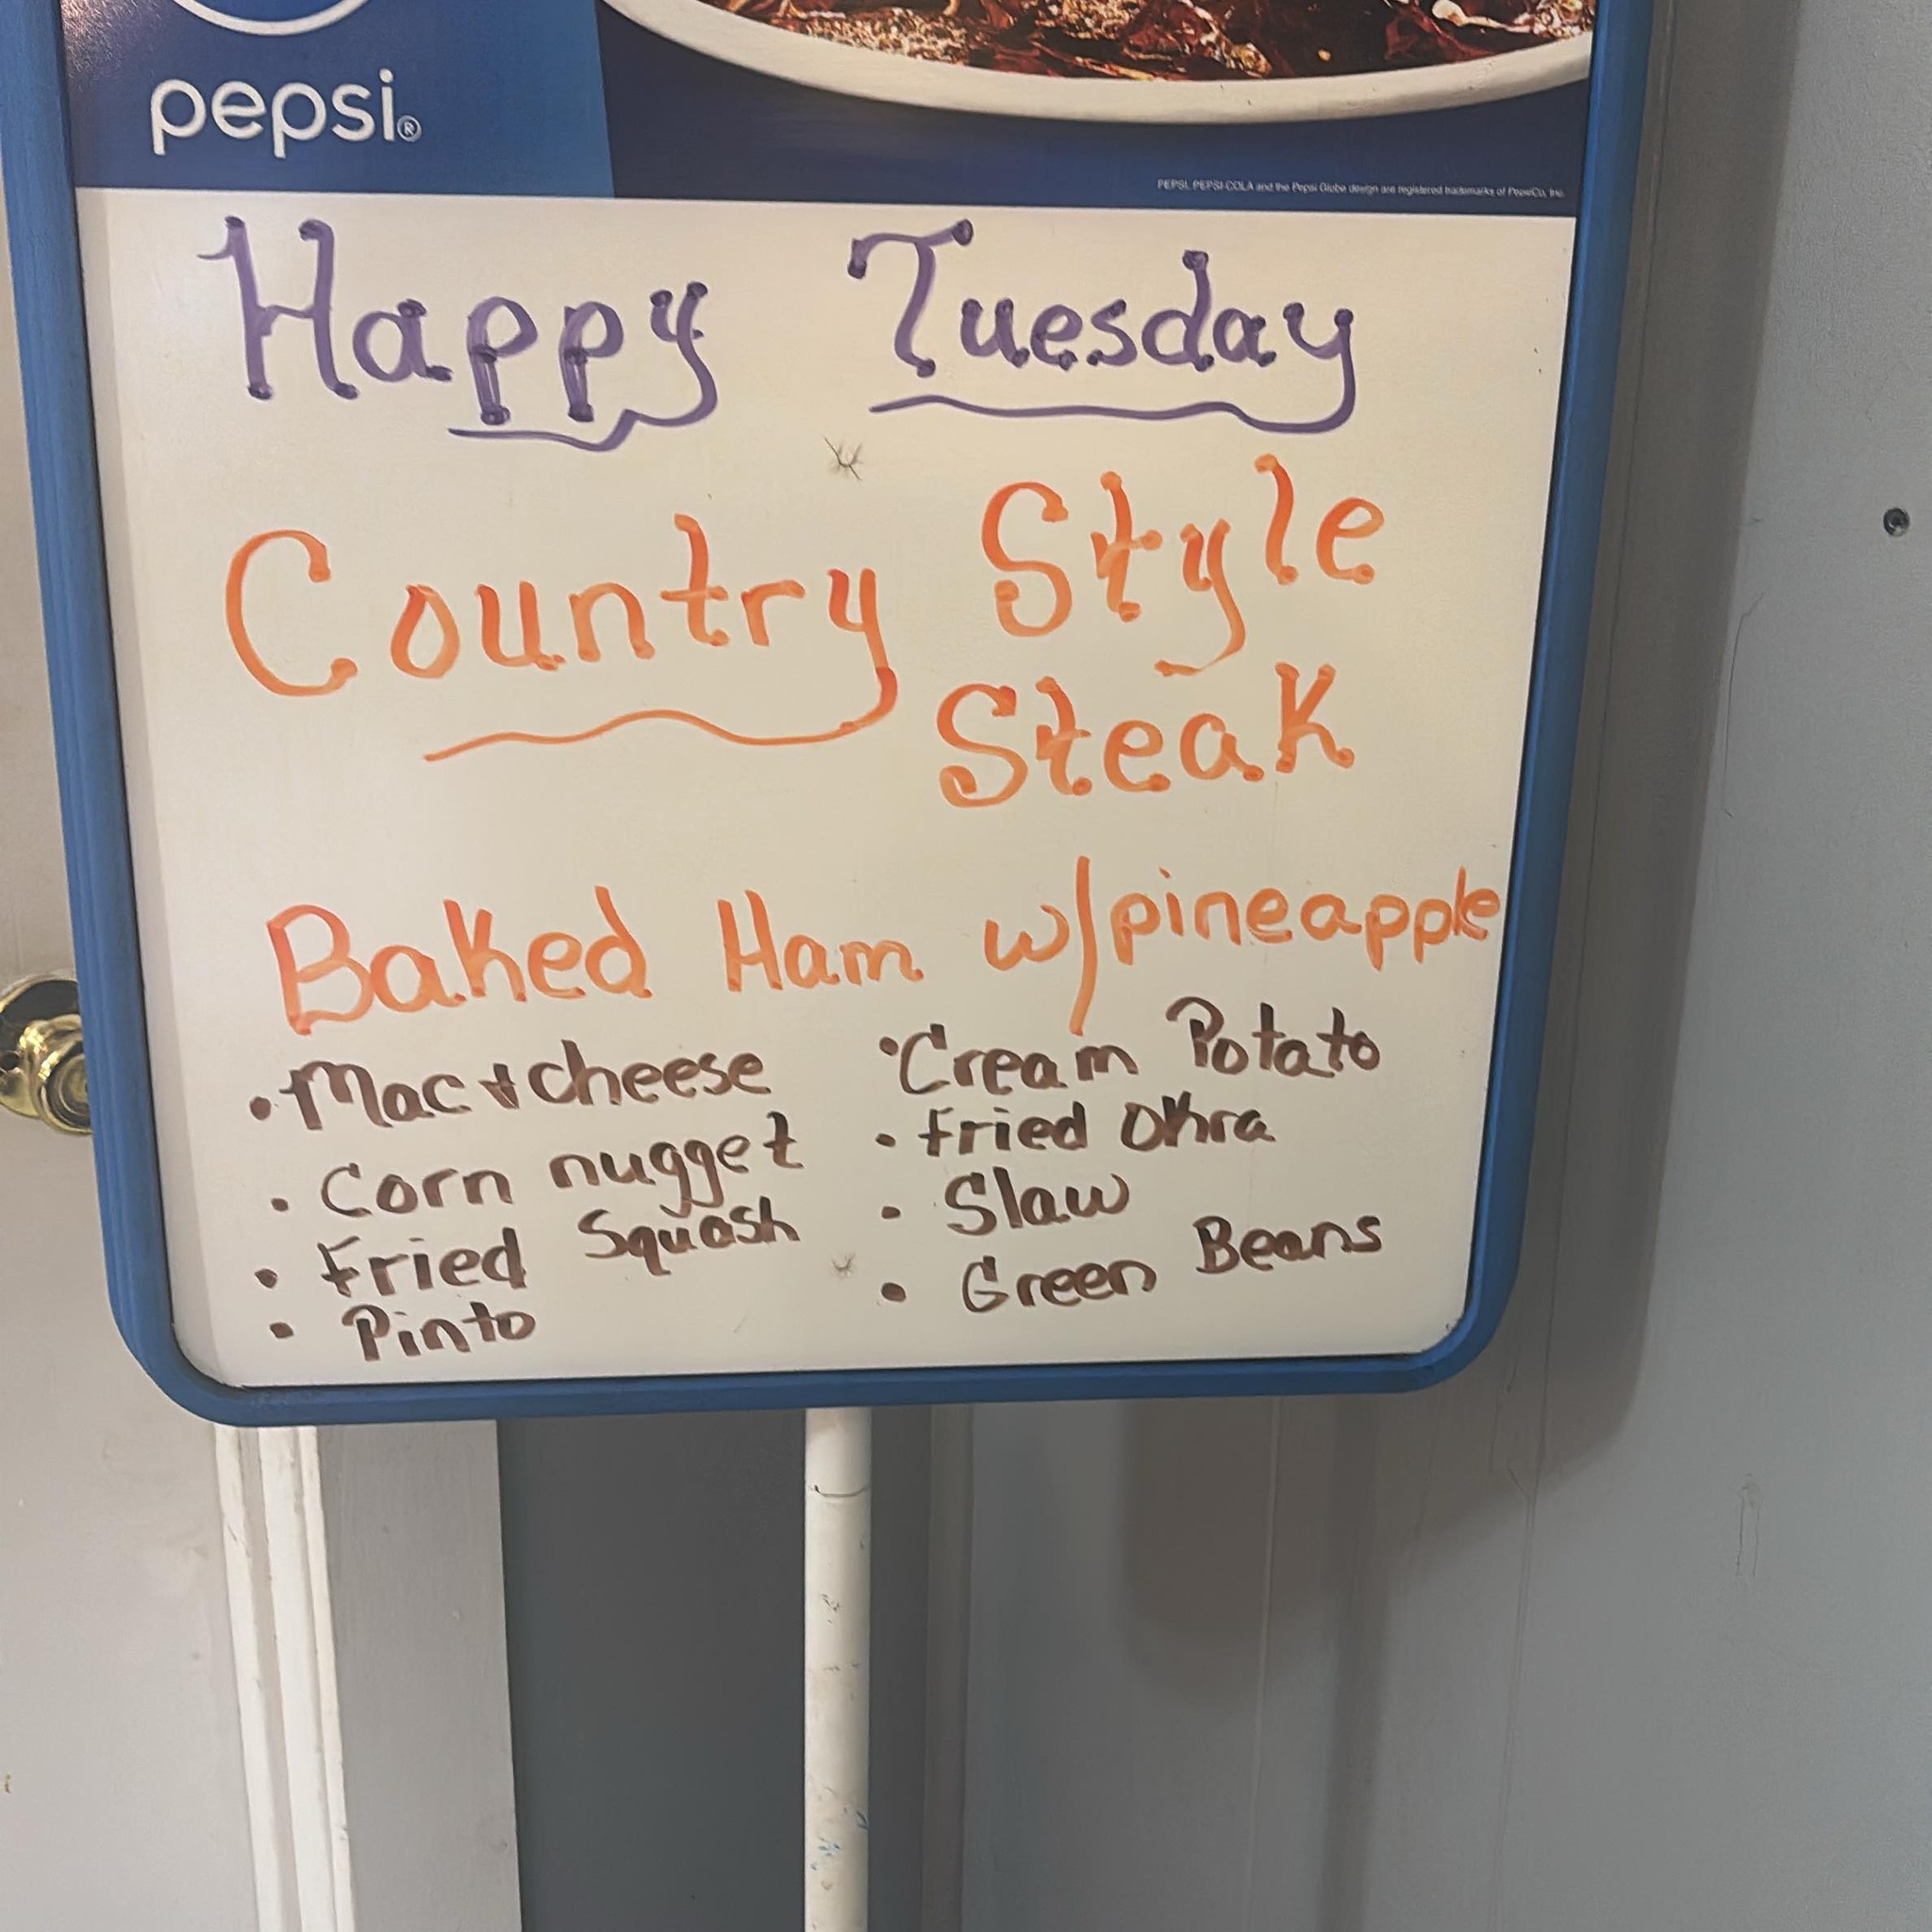 pepsi®
PEPSI, PEPSI-COLA and the Pepsi Globe design are registered trademarks of PepsiCo, Inc.
Happy Tuesday
Country Style
Steak
Baked Ham w/pineapple
• Mac + cheese
• Corn nugget
• Fried Squash
• Pinto
• Cream Potato
• Fried Okra
• Slaw
• Green Beans